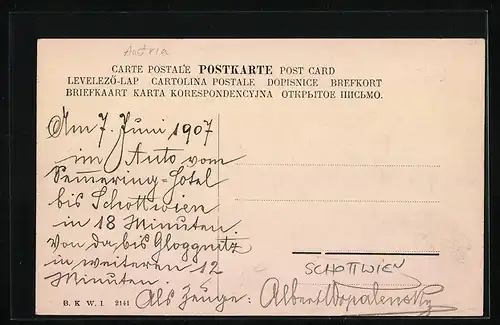 Austria
CARTE POSTALE POSTKARTE POST CARD
LEVELEZŐ-LAP CARTOLINA POSTALE DOPISNICE BREFKORT
BRIEFKAART KARTA KORESPONDENCYJNA ОТКРЫТОЕ ПИСЬМО.
Am 7. Juni 1907
im Auto vom
Semmering-Hotel
bis Schottwien
in 18 Minuten.
Von da bis Gloggnitz
in weiteren 12
Minuten.
SCHOTTWIEN
B. K. W. I. 2141
Als Zeuge: Albert